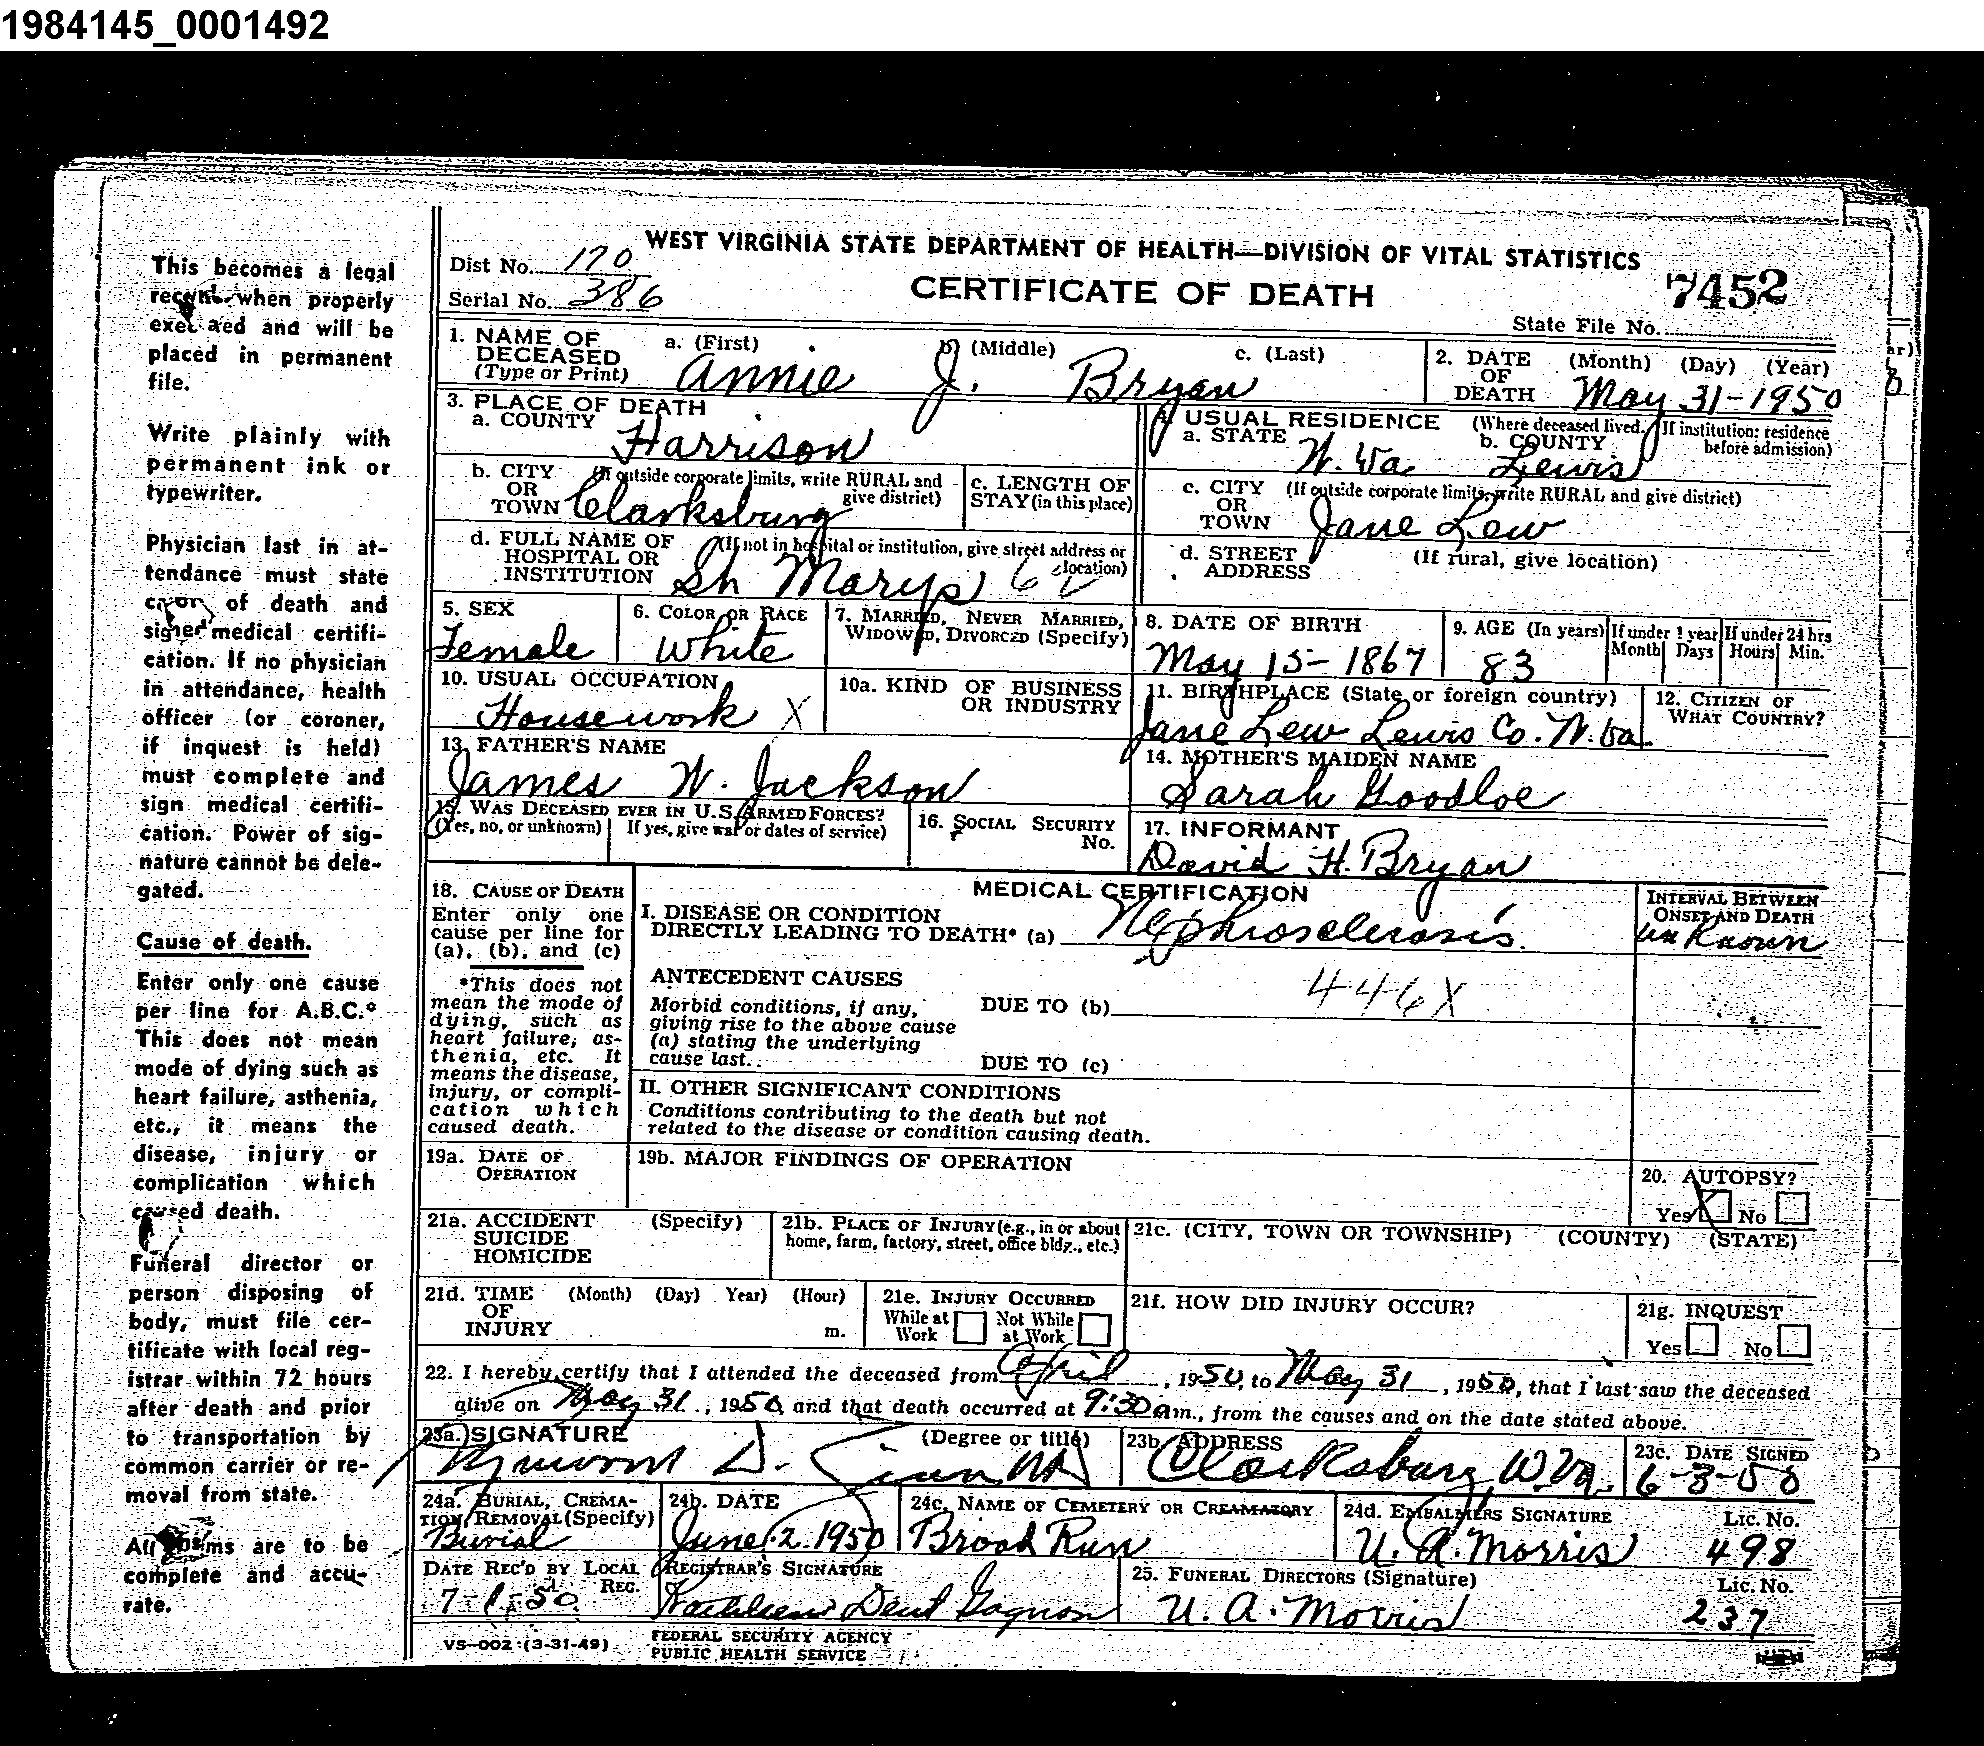 1984145_0001492
This becomes a legal
when properly
and will be
placed in permanent
file.
Write plainly with
permanent ink or
typewriter.
Physician last in at-
tendance must state
of death and
medical certifi-
cation. If no physician
in attendance, health
officer (or coroner,
if inquest is held)
must complete and
sign medical certifi-
cation. Power of sig-
nature cannot be dele-
gated.
Cause of death.
Enter only one cause
per line for A.B.C.*
This does not mean
mode of dying such as
heart failure, asthenia,
etc., it means the
disease, injury or
complication which
caused death.
Funeral director or
person disposing of
body, must file cer-
tificate with local reg-
istrar within 72 hours
after death and prior
to transportation by
common carrier or re-
moval from state.
All are to be
complete and accu-
rate.
WEST VIRGINIA STATE DEPARTMENT OF HEALTH—DIVISION OF VITAL STATISTICS
Dist No. 170
CERTIFICATE OF DEATH
7452
Serial No. 386
State File No.
1. NAME OF DECEASED (Type or Print) a. (First) Annie b. (Middle) J. c. (Last) Bryan
2. DATE OF DEATH (Month) (Day) (Year) May 31-1950
3. PLACE OF DEATH
a. COUNTY Harrison
4. USUAL RESIDENCE (Where deceased lived. If institution: residence before admission)
a. STATE W. Va b. COUNTY Lewis
b. CITY OR TOWN (If outside corporate limits, write RURAL and give district) Clarksburg
c. LENGTH OF STAY (in this place)
c. CITY OR TOWN (If outside corporate limits, write RURAL and give district) Jane Lew
d. FULL NAME OF HOSPITAL OR INSTITUTION (If not in hospital or institution, give street address or location) Marys
d. STREET ADDRESS (If rural, give location)
5. SEX Female
6. COLOR OR RACE White
7. MARRIED, NEVER MARRIED, WIDOWED, DIVORCED (Specify)
8. DATE OF BIRTH May 15-1867
9. AGE (In years) 83
If under 1 year Month Days
If under 24 hrs Hours Min.
10. USUAL OCCUPATION Housework X
10a. KIND OF BUSINESS OR INDUSTRY
11. BIRTHPLACE (State or foreign country) Jane Lew Lewis Co. W. Va.
12. CITIZEN OF WHAT COUNTRY?
13. FATHER'S NAME James W. Jackson
14. MOTHER'S MAIDEN NAME Sarah Goodloe
15. WAS DECEASED EVER IN U.S. ARMED FORCES?
(Yes, no, or unknown) If yes, give war or dates of service)
16. SOCIAL SECURITY No.
17. INFORMANT David H. Bryan
18. CAUSE OF DEATH
Enter only one
cause per line for
(a), (b), and (c)
*This does not
mean the mode of
dying, such as
heart failure, as-
thenia, etc. It
means the disease,
injury, or compli-
cation which
caused death.
MEDICAL CERTIFICATION
INTERVAL BETWEEN ONSET AND DEATH
I. DISEASE OR CONDITION
DIRECTLY LEADING TO DEATH* (a) Nephrosclerosis unknown
ANTECEDENT CAUSES
446X
Morbid conditions, if any, DUE TO (b)
giving rise to the above cause
(a) stating the underlying
cause last. DUE TO (c)
II. OTHER SIGNIFICANT CONDITIONS
Conditions contributing to the death but not
related to the disease or condition causing death.
19a. DATE OF OPERATION
19b. MAJOR FINDINGS OF OPERATION
20. AUTOPSY?
Yes No
21a. ACCIDENT SUICIDE HOMICIDE (Specify)
21b. PLACE OF INJURY (e.g., in or about home, farm, factory, street, office bldg., etc.)
21c. (CITY, TOWN OR TOWNSHIP) (COUNTY) (STATE)
21d. TIME OF INJURY (Month) (Day) Year) (Hour) m.
21e. INJURY OCCURRED
While at Work Not While at Work
21f. HOW DID INJURY OCCUR?
21g. INQUEST
Yes No
22. I hereby certify that I attended the deceased from April, 1950, to May 31, 1950, that I last saw the deceased
alive on May 31, 1950, and that death occurred at 9:30 am., from the causes and on the date stated above.
23a. SIGNATURE (Degree or title) D. MD
23b. ADDRESS Clarksburg W. Va.
23c. DATE SIGNED 6-3-50
24a. BURIAL, CREMATION, REMOVAL (Specify) Burial
24b. DATE June 2. 1950
24c. NAME OF CEMETERY OR CREMATORY Broad Run
24d. EMBALMERS SIGNATURE U. A. Morris Lic. No. 498
DATE REC'D BY LOCAL REG. 7-1-50
REGISTRAR'S SIGNATURE Kathleen Dent Gagnon
25. FUNERAL DIRECTORS (Signature) U. A. Morris Lic. No. 237
VS-002 (3-31-49)
FEDERAL SECURITY AGENCY
PUBLIC HEALTH SERVICE